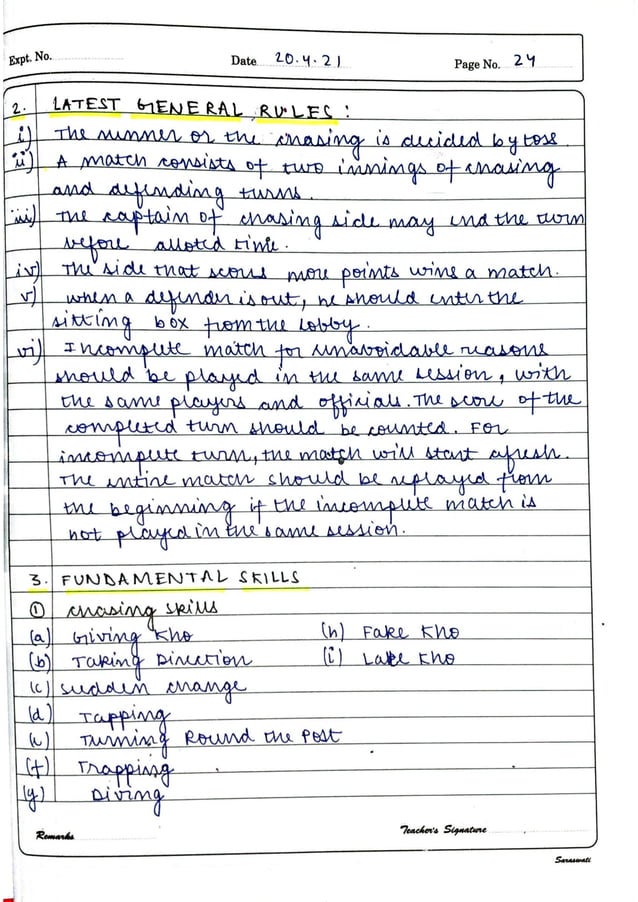 Expt. No.
Date 20.4.21
Page No. 24
2. LATEST GENERAL RULES:
i) The runner or the chasing is decided by toss.
ii) A match consists of two innings of chasing
and defending turns.
iii) The captain of chasing side may end the turn
before alloted time.
iv) The side that scores more points wins a match.
v) When a defender is out, he should enter the
sitting box from the lobby.
vi) Incomplete match for unavoidable reasons
should be played in the same session, with
the same players and officials. The score of the
completed turn should be counted. For
incomplete turn, the match will start afresh.
The entire match should be replayed from
the beginning if the incomplete match is
not played in the same session.
3. FUNDAMENTAL SKILLS
① Chasing skills
(a) Giving Kho (h) Fake Kho
(b) Taking Direction (i) Late Kho
(c) Sudden change
(d) Tapping
(e) Turning Round the Post
(f) Trapping
(g) Diving
Remarks
Teacher's Signature
Saraswati